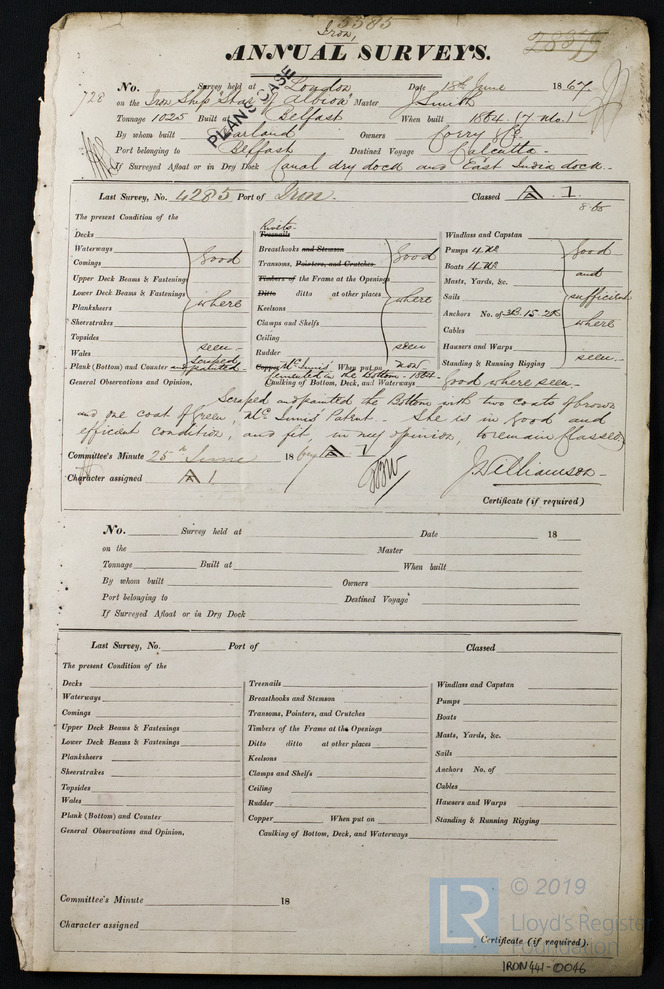 5585
Iron,
ANNUAL SURVEYS.
PLANS CASE
728
No. Survey held at London Date 18th June 1867
on the Iron Ship "Star of Albion" Master J Smith
Tonnage 1025 Built at Belfast When built 1864. (7 Mo.)
By whom built Harland Owners Corry & Co
Port belonging to Belfast Destined Voyage Calcutta
If Surveyed Afloat or in Dry Dock Canal dry dock and East India dock.
Last Survey, No. 4285 Port of Iron. Classed A. 1.
8.66
The present Condition of the
Decks
Waterways
Comings
Upper Deck Beams & Fastenings
Lower Deck Beams & Fastenings
Planksheers
Sheerstrakes
Topsides
Wales
Plank (Bottom) and Counter scraped and painted
Good where seen
Rivets
Treenails
Breasthooks and Stemson
Transoms, Pointers, and Crutches
Timbers of the Frame at the Openings
Ditto ditto at other places
Keelsons
Clamps and Shelfs
Ceiling
Rudder
Good where seen
Copper McInnis' When put on now
cemented in the bottom - 1864.
Caulking of Bottom, Deck, and Waterways Good where seen
Windlass and Capstan
Pumps 4. No
Boats 4. No
Masts, Yards, &c.
Sails
Anchors No. of 3B. 1S. 2K
Cables
Hawsers and Warps
Standing & Running Rigging
Good and sufficient where seen
General Observations and Opinion,
Scraped and painted the Bottom with two coats of brown
and one coat of Green, McInnis Patent. She is in good and
efficient condition, and fit, in my opinion, to remain Classed
Committee's Minute 25th June 1867 A 1
Character assigned A 1.
J Williamson
Certificate (if required)
No. Survey held at Date 18
on the Master
Tonnage Built at When built
By whom built Owners
Port belonging to Destined Voyage
If Surveyed Afloat or in Dry Dock
Last Survey, No. Port of Classed
The present Condition of the
Decks
Waterways
Comings
Upper Deck Beams & Fastenings
Lower Deck Beams & Fastenings
Planksheers
Sheerstrakes
Topsides
Wales
Plank (Bottom) and Counter
General Observations and Opinion,
Treenails
Breasthooks and Stemson
Transoms, Pointers, and Crutches
Timbers of the Frame at the Openings
Ditto ditto at other places
Keelsons
Clamps and Shelfs
Ceiling
Rudder
Copper When put on
Caulking of Bottom, Deck, and Waterways
Windlass and Capstan
Pumps
Boats
Masts, Yards, &c.
Sails
Anchors No. of
Cables
Hawsers and Warps
Standing & Running Rigging
Committee's Minute 18
Character assigned
Certificate (if required).
LR
© 2019
Lloyd's Register
Foundation
IRON441-0046